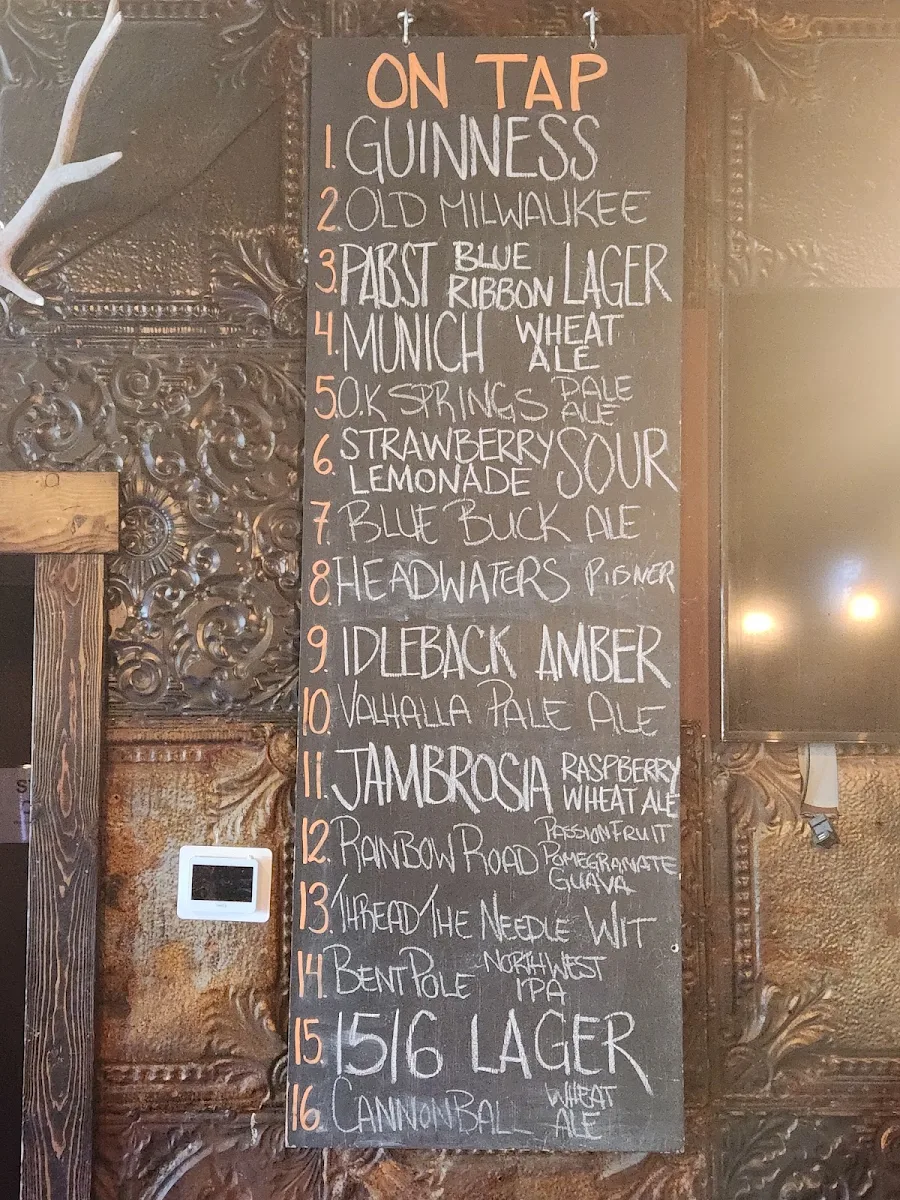 ON TAP
1. GUINNESS
2. OLD MILWAUKEE
3. PABST BLUE RIBBON LAGER
4. MUNICH WHEAT ALE
5. O.K SPRINGS PALE ALE
6. STRAWBERRY LEMONADE SOUR
7. BLUE BUCK ALE
8. HEADWATERS PISNER
9. IDLEBACK AMBER
10. VALHALLA PALE ALE
11. JAMBROSIA RASPBERRY WHEAT ALE
12. RAINBOW ROAD PASSIONFRUIT POMEGRANATE GUAVA
13. THREAD THE NEEDLE WIT
14. BENT POLE NORTHWEST IPA
15. 1516 LAGER
16. CANNONBALL WHEAT ALE